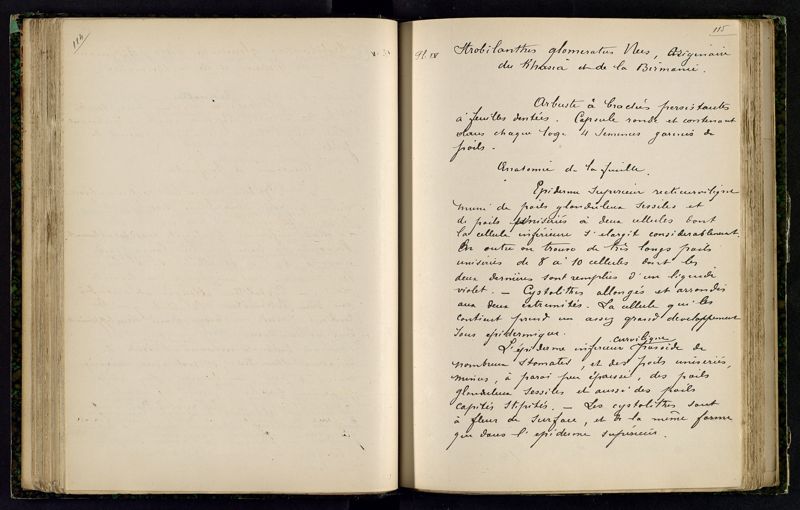 114
115
Pl. IX
Strobilanthes glomeratus Nees, Originaire
du Khasia et de la Birmanie.
Arbuste à bractées persistantes
à feuilles dentées. Capsule ronde et contenant
dans chaque loge 4 semences garnies de
poils.
Anatomie de la feuille.
Epiderme supérieur recticurviligne
muni de poils glanduleux sessiles et
de poils unisériés à deux cellules dont
la cellule inférieure s'élargit considérablement.
En outre on trouve de très longs poils
unisériés de 8 à 10 cellules dont les
deux dernières sont remplies d'un liquide
violet. — Cystolithes allongés et arrondis
aux deux extrémités. La cellule qui les
contient prend un assez grand développement
sous épidermique.
curviligne
L'épiderme inférieur possède de
nombreux stomates, et des poils unisériés,
minces, à paroi peu épaisse, des poils
glanduleux sessiles et aussi des poils
capités stipités. — Les cystolithes sont
à fleur de surface, et de la même forme
que dans l'épiderme supérieur.